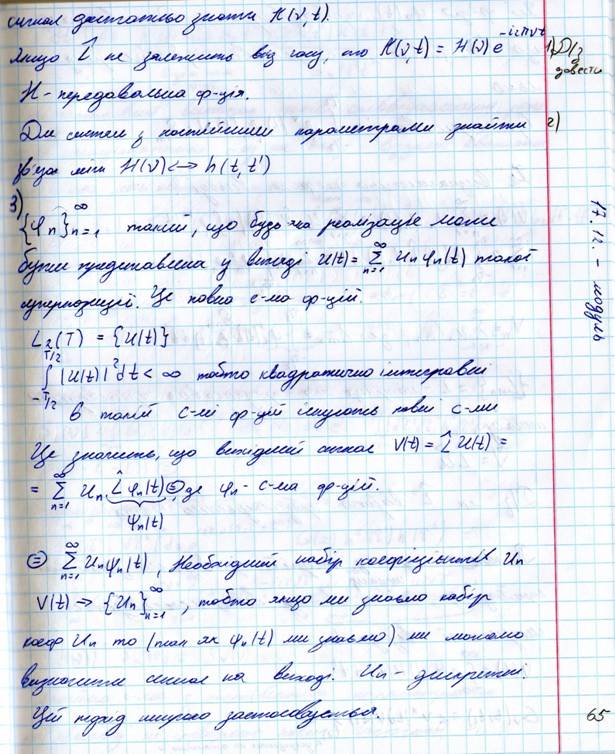 сигнал достатньо знати K(ν,t).
якщо L̂ не залежить від часу, то K(ν,t) = H(ν)e^{-i2πνt} 1) Д/з довести
H - передавальна ф-ція.
Для систем з постійними параметрами знайти 2)
зв'язок між H(ν) <-> h(t,t')
3) {φn}_{n=1}^{∞} такий, що будь-яка реалізація може
бути представлена у вигляді U(t) = Σ_{n=1}^{∞} Un φn(t) такої
суперпозиції. Це повна с-ма ф-цій.
L2(T) = {U(t)}
∫_{-T/2}^{T/2} |U(t)|²dt < ∞ тобто квадратично інтегровні
В такій с-мі ф-цій існують повні с-ми
Це значить, що вихідний сигнал V(t) = L̂ U(t) =
= Σ_{n=1}^{∞} Un L̂φn(t) ⊜, де φn - с-ма ф-цій.
ψn(t)
⊜ Σ_{n=1}^{∞} Un ψn(t), Необхідний набір коефіцієнтів Un
V(t) → {Un}_{n=1}^{∞}, тобто якщо ми знаємо набір
коеф Un то (так як ψn(t) ми знаємо) ми можемо
визначити сигнал на виході. Un - дискретні.
Цей підхід широко застосовується.
17.12. - модуль
65